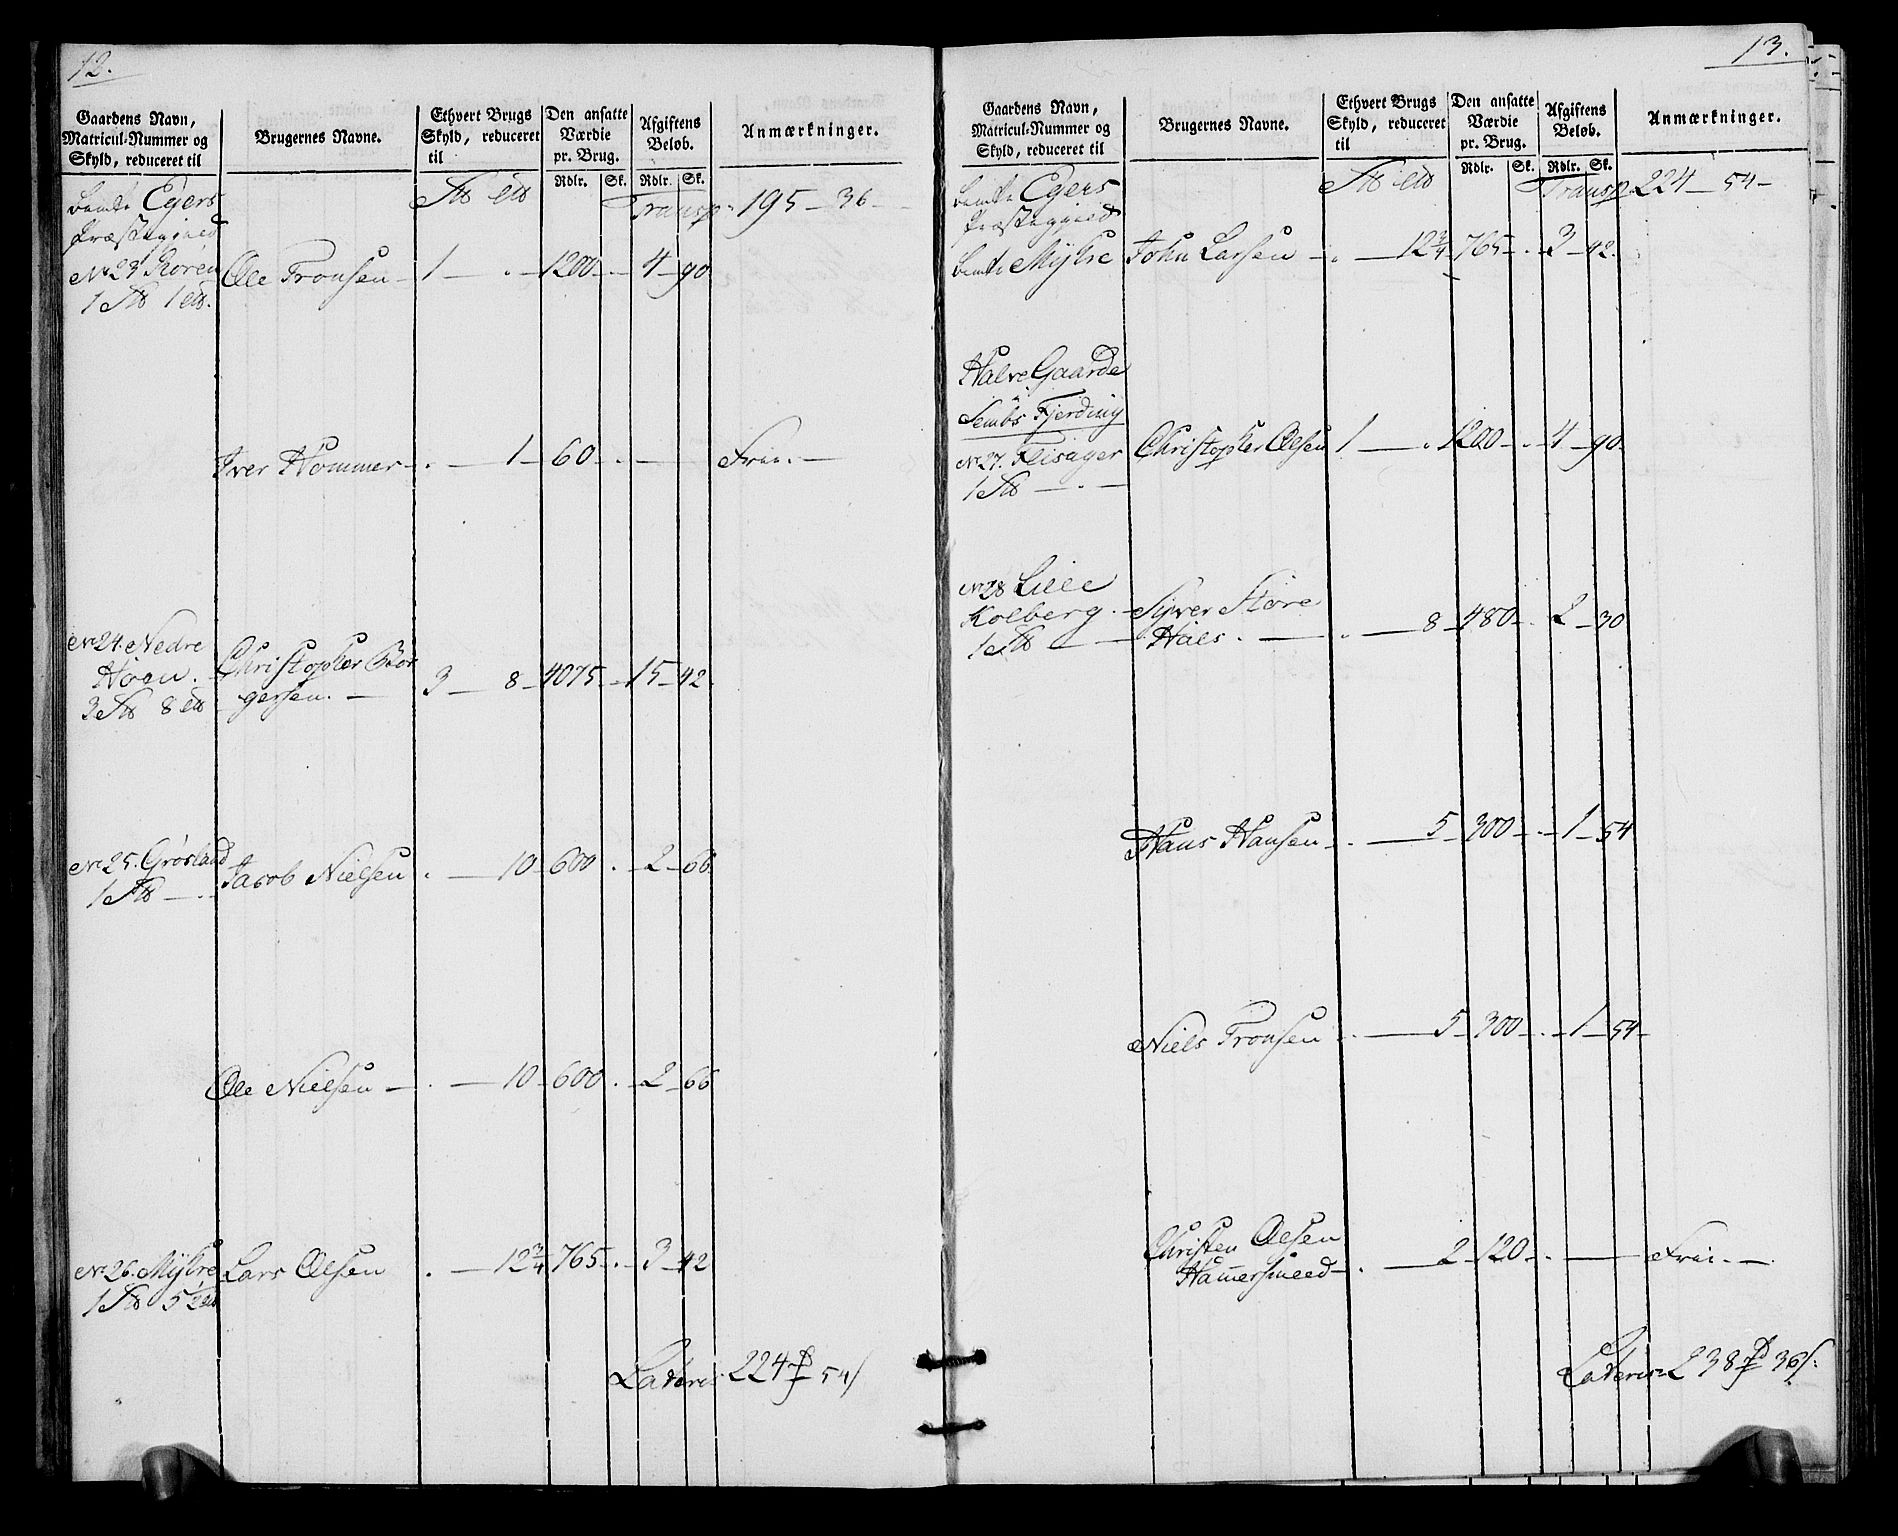 12.
Gaardens Navn, Matricul-Nummer og Skyld, reduceret til
Brugernes Navne.
Ethvert Brugs Skyld, reduceret til
Den ansatte Værdie pr. Brug.
Afgiftens Beløb.
Anmærkninger.
Rdlr. Sk. Rdlr. Sk.
Egers Transp: 195 – 36 –
Præstegjeld
No 23 Ole Tronsen – 1 – . – 1200 – . – 4 – 90
Iver Hommer – . – 1 – 60 – . – Frie. –
No 24. Nedre
Hoen. Christopher Bor
gersen. – 3 – 8 – 4075 – . – 15 – 42
No 25. Grøsland Jacob Nielsen . – 10 – 600 . – 2 – 66
Ole Nielsen – . – 10 – 600 . – 2 – 66
No 26. Myhre Lars Olsen . – 12 3/4 – 765 – . – 3 – 42
Lateris 224 54
13.
Gaardens Navn, Matricul-Nummer og Skyld, reduceret til
Brugernes Navne.
Ethvert Brugs Skyld, reduceret til
Den ansatte Værdie pr. Brug.
Afgiftens Beløb.
Anmærkninger.
Rdlr. Sk. Rdlr. Sk.
Egers Transp 224 – 54 –
Præstegjeld
Myhre John Larsen – . – 12 3/4 – 765 – . – 3 – 42.
Halve Gaarde
i
Sembs Fjerding
No 27. Flisager Christopher Olsen 1 – . 1200 – . – 4 – 90
No 28 Lille
Kolberg. – Syver Store
Hals. – . – 8 – 480 – . – 2 – 30
Hans Hansen – . – 5 – 300 – . – 1 – 54
Niels Tronsen . – 5 – 300 – . – 1 – 54 –
Christen Olsen
Hamersmeed – . – 2 – 120 – . – Frie. –
Lateris 238 36